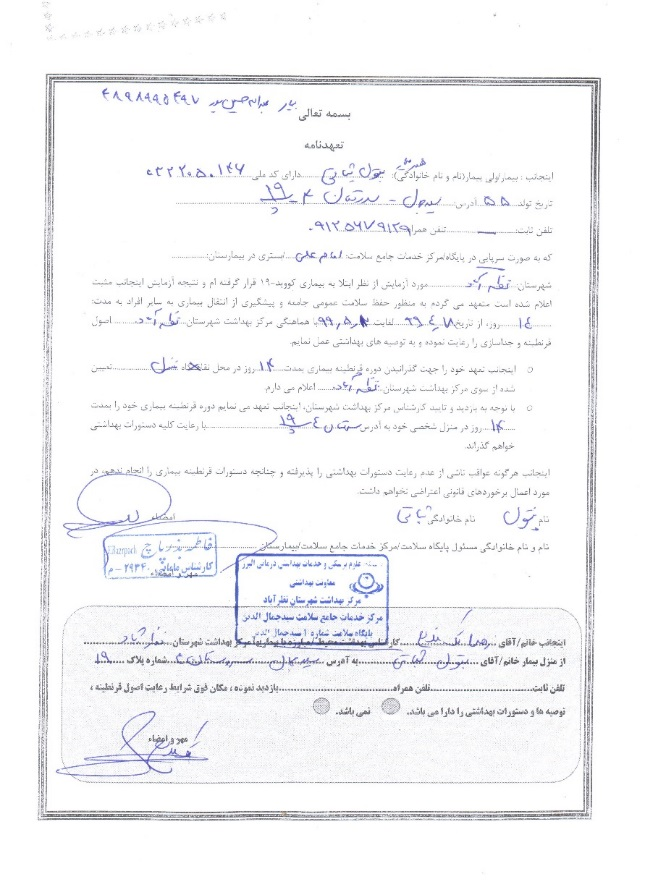 بسمه تعالی
تعهدنامه
اینجانب : بیمار/ولی بیمار(نام و نام خانوادگی): بتول ثباتی دارای کد ملی
تاریخ تولد ۵۵ آدرس
تلفن ثابت: تلفن همراه ۰۹۱۲۵۶۷۹۱۲۹
که به صورت سرپایی در پایگاه/مرکز خدمات جامع سلامت: امام علی /بستری در بیمارستان:
شهرستان نظرآباد مورد آزمایش از نظر ابتلا به بیماری کووید-۱۹ قرار گرفته ام و نتیجه آزمایش اینجانب مثبت
اعلام شده است متعهد می گردم به منظور حفظ سلامت عمومی جامعه و پیشگیری از انتقال بیماری به سایر افراد به مدت:
۱۴ روز، از تاریخ لغایت با هماهنگی مرکز بهداشت شهرستان نظرآباد اصول
قرنطینه و جداسازی را رعایت نموده و به توصیه های بهداشتی عمل نمایم.
○ اینجانب تعهد خود را جهت گذراندن دوره قرنطینه بیماری بمدت ۱۴ روز در محل نقاهتگاه منزل تعیین
شده از سوی مرکز بهداشت شهرستان نظرآباد اعلام می دارم.
○ با توجه به بازدید و تایید کارشناس مرکز بهداشت شهرستان، اینجانب تعهد می نمایم دوره قرنطینه بیماری خود را بمدت
۱۴ روز در منزل شخصی خود به آدرس با رعایت کلیه دستورات بهداشتی
خواهم گذراند.
اینجانب هرگونه عواقب ناشی از عدم رعایت دستورات بهداشتی را پذیرفته و چنانچه دستورات قرنطینه بیماری را انجام ندهم، در
مورد اعمال برخوردهای قانونی اعتراضی نخواهم داشت.
نام بتول نام خانوادگی ثباتی امضاء
نام و نام خانوادگی مسئول پایگاه سلامت/مرکز خدمات جامع سلامت/بیمارستان
مهر و امضاء
کارشناس مامائی
م - ۲۹۳۴۰
علوم پزشکی و خدمات بهداشتی درمانی البرز
معاونت بهداشتی
مرکز بهداشت شهرستان نظرآباد
مرکز خدمات جامع سلامت سیدجمال الدین
پایگاه سلامت شماره ۱ سیدجمال الدین
اینجانب خانم/آقای کارشناس بهداشت محیط/مبارزه با بیماریها مرکز بهداشت شهرستان نظرآباد
از منزل بیمار خانم/آقای بتول ثباتی به آدرس شماره پلاک ۱۹
تلفن ثابت تلفن همراه بازدید نموده ، مکان فوق شرایط رعایت اصول قرنطینه ،
توصیه ها و دستورات بهداشتی را دارا می باشد. نمی باشد.
مهر و امضاء